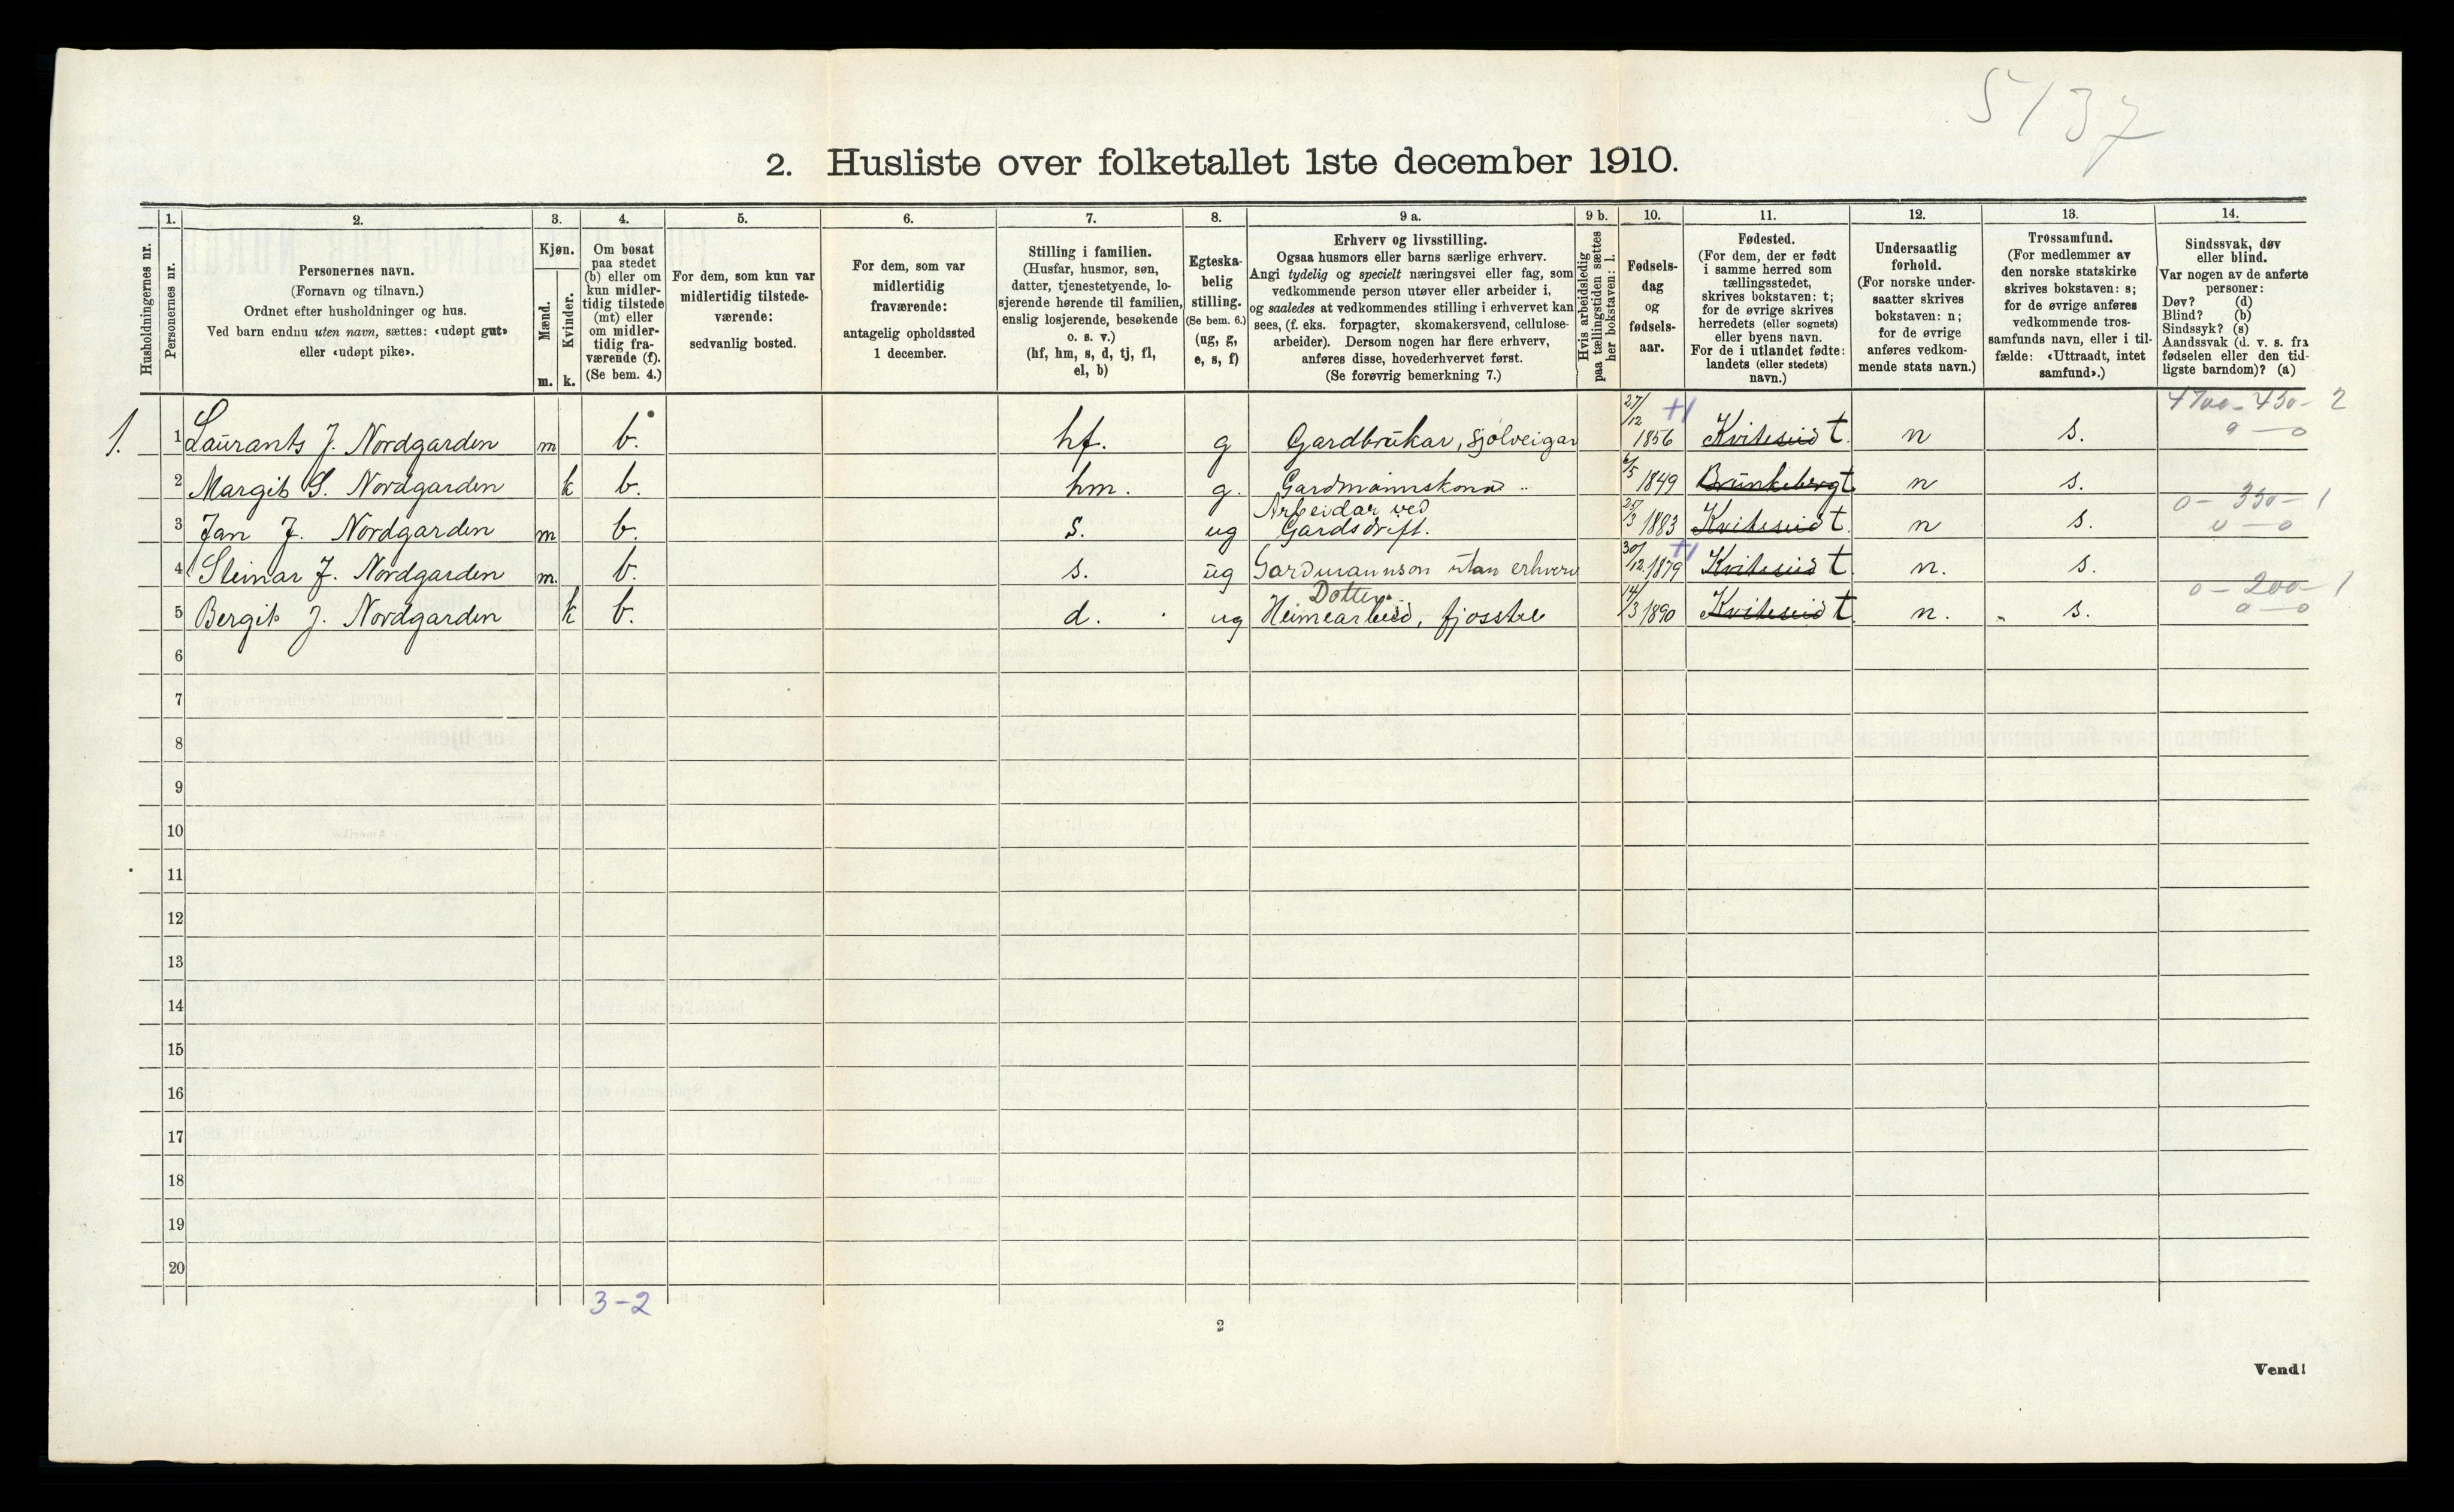 5137
2. Husliste over folketallet 1ste december 1910.
Husholdningernes nr.
1. Personernes nr.
2. Personernes navn.
(Fornavn og tilnavn.)
Ordnet efter husholdninger og hus.
Ved barn endnu uten navn, sættes: «udøpt gut»
eller «udøpt pike».
3. Kjøn.
Mænd. m.
Kvinder. k.
4. Om bosat
paa stedet
(b) eller om
kun midler-
tidig tilstede
(mt) eller
om midler-
tidig fra-
værende (f).
(Se bem. 4.)
5. For dem, som kun var
midlertidig tilstede-
værende:
sedvanlig bosted.
6. For dem, som var
midlertidig
fraværende:
antagelig opholdssted
1 december.
7. Stilling i familien.
(Husfar, husmor, søn,
datter, tjenestetyende, lo-
sjerende hørende til familien,
enslig losjerende, besøkende
o. s. v.)
(hf, hm, s, d, tj, fl,
el, b)
8. Egteska-
belig
stilling.
(Se bem. 6.)
(ug, g,
e, s, f)
9 a. Erhverv og livsstilling.
Ogsaa husmors eller barns særlige erhverv.
Angi tydelig og specielt næringsvei eller fag, som
vedkommende person utøver eller arbeider i,
og saaledes at vedkommendes stilling i erhvervet kan
sees, (f. eks. forpagter, skomakersvend, cellulose-
arbeider). Dersom nogen har flere erhverv,
anføres disse, hovederhvervet først.
(Se forøvrig bemerkning 7.)
9 b. Hvis arbeidsledig
paa tællingstiden sættes
her bokstaven: l.
10. Fødsels-
dag
og
fødsels-
aar.
11. Fødested.
(For dem, der er født
i samme herred som
tællingsstedet,
skrives bokstaven: t;
for de øvrige skrives
herredets (eller sognets)
eller byens navn.
For de i utlandet fødte:
landets (eller stedets)
navn.)
12. Undersaatlig
forhold.
(For norske under-
saatter skrives
bokstaven: n;
for de øvrige
anføres vedkom-
mende stats navn.)
13. Trossamfund.
(For medlemmer av
den norske statskirke
skrives bokstaven: s;
for de øvrige anføres
vedkommende tros-
samfunds navn, eller i til-
fælde: «Uttraadt, intet
samfund».)
14. Sindssvak, døv
eller blind.
Var nogen av de anførte
personer:
Døv? (d)
Blind? (b)
Sindssyk? (s)
Aandssvak (d. v. s. fra
fødselen eller den tid-
ligste barndom)? (a)
1. 1 Laurants J. Nordgarden m b. hf. g Gardbrukar, sjølveigar 27/12 1856 Kviteseid t. n s. 4700 - 450 - 2
0 — 0
2 Margit S. Nordgarden k b. hm. g. Gardmannskona 6/5 1849 Brunkeberg t n s.
3 Jan J. Nordgarden m b. s. ug Arbeidar ved
Gardsdrift. 25/3 1883 Kviteseid t. n s. 0 - 350 - 1
0 — 0
4 Steinar J. Nordgarden m. b. s. ug Gardmannson utan erhverv 30/12 1879 Kviteseid t. n. s.
5 Bergit J. Nordgarden k b. d. ug Dotter.
Heimearbeid, fjosstel 14/3 1890 Kviteseid t. n. s. 0 - 200 - 1
0 — 0
6
7
8
9
10
11
12
13
14
15
16
17
18
19
20
3-2
2
Vend!